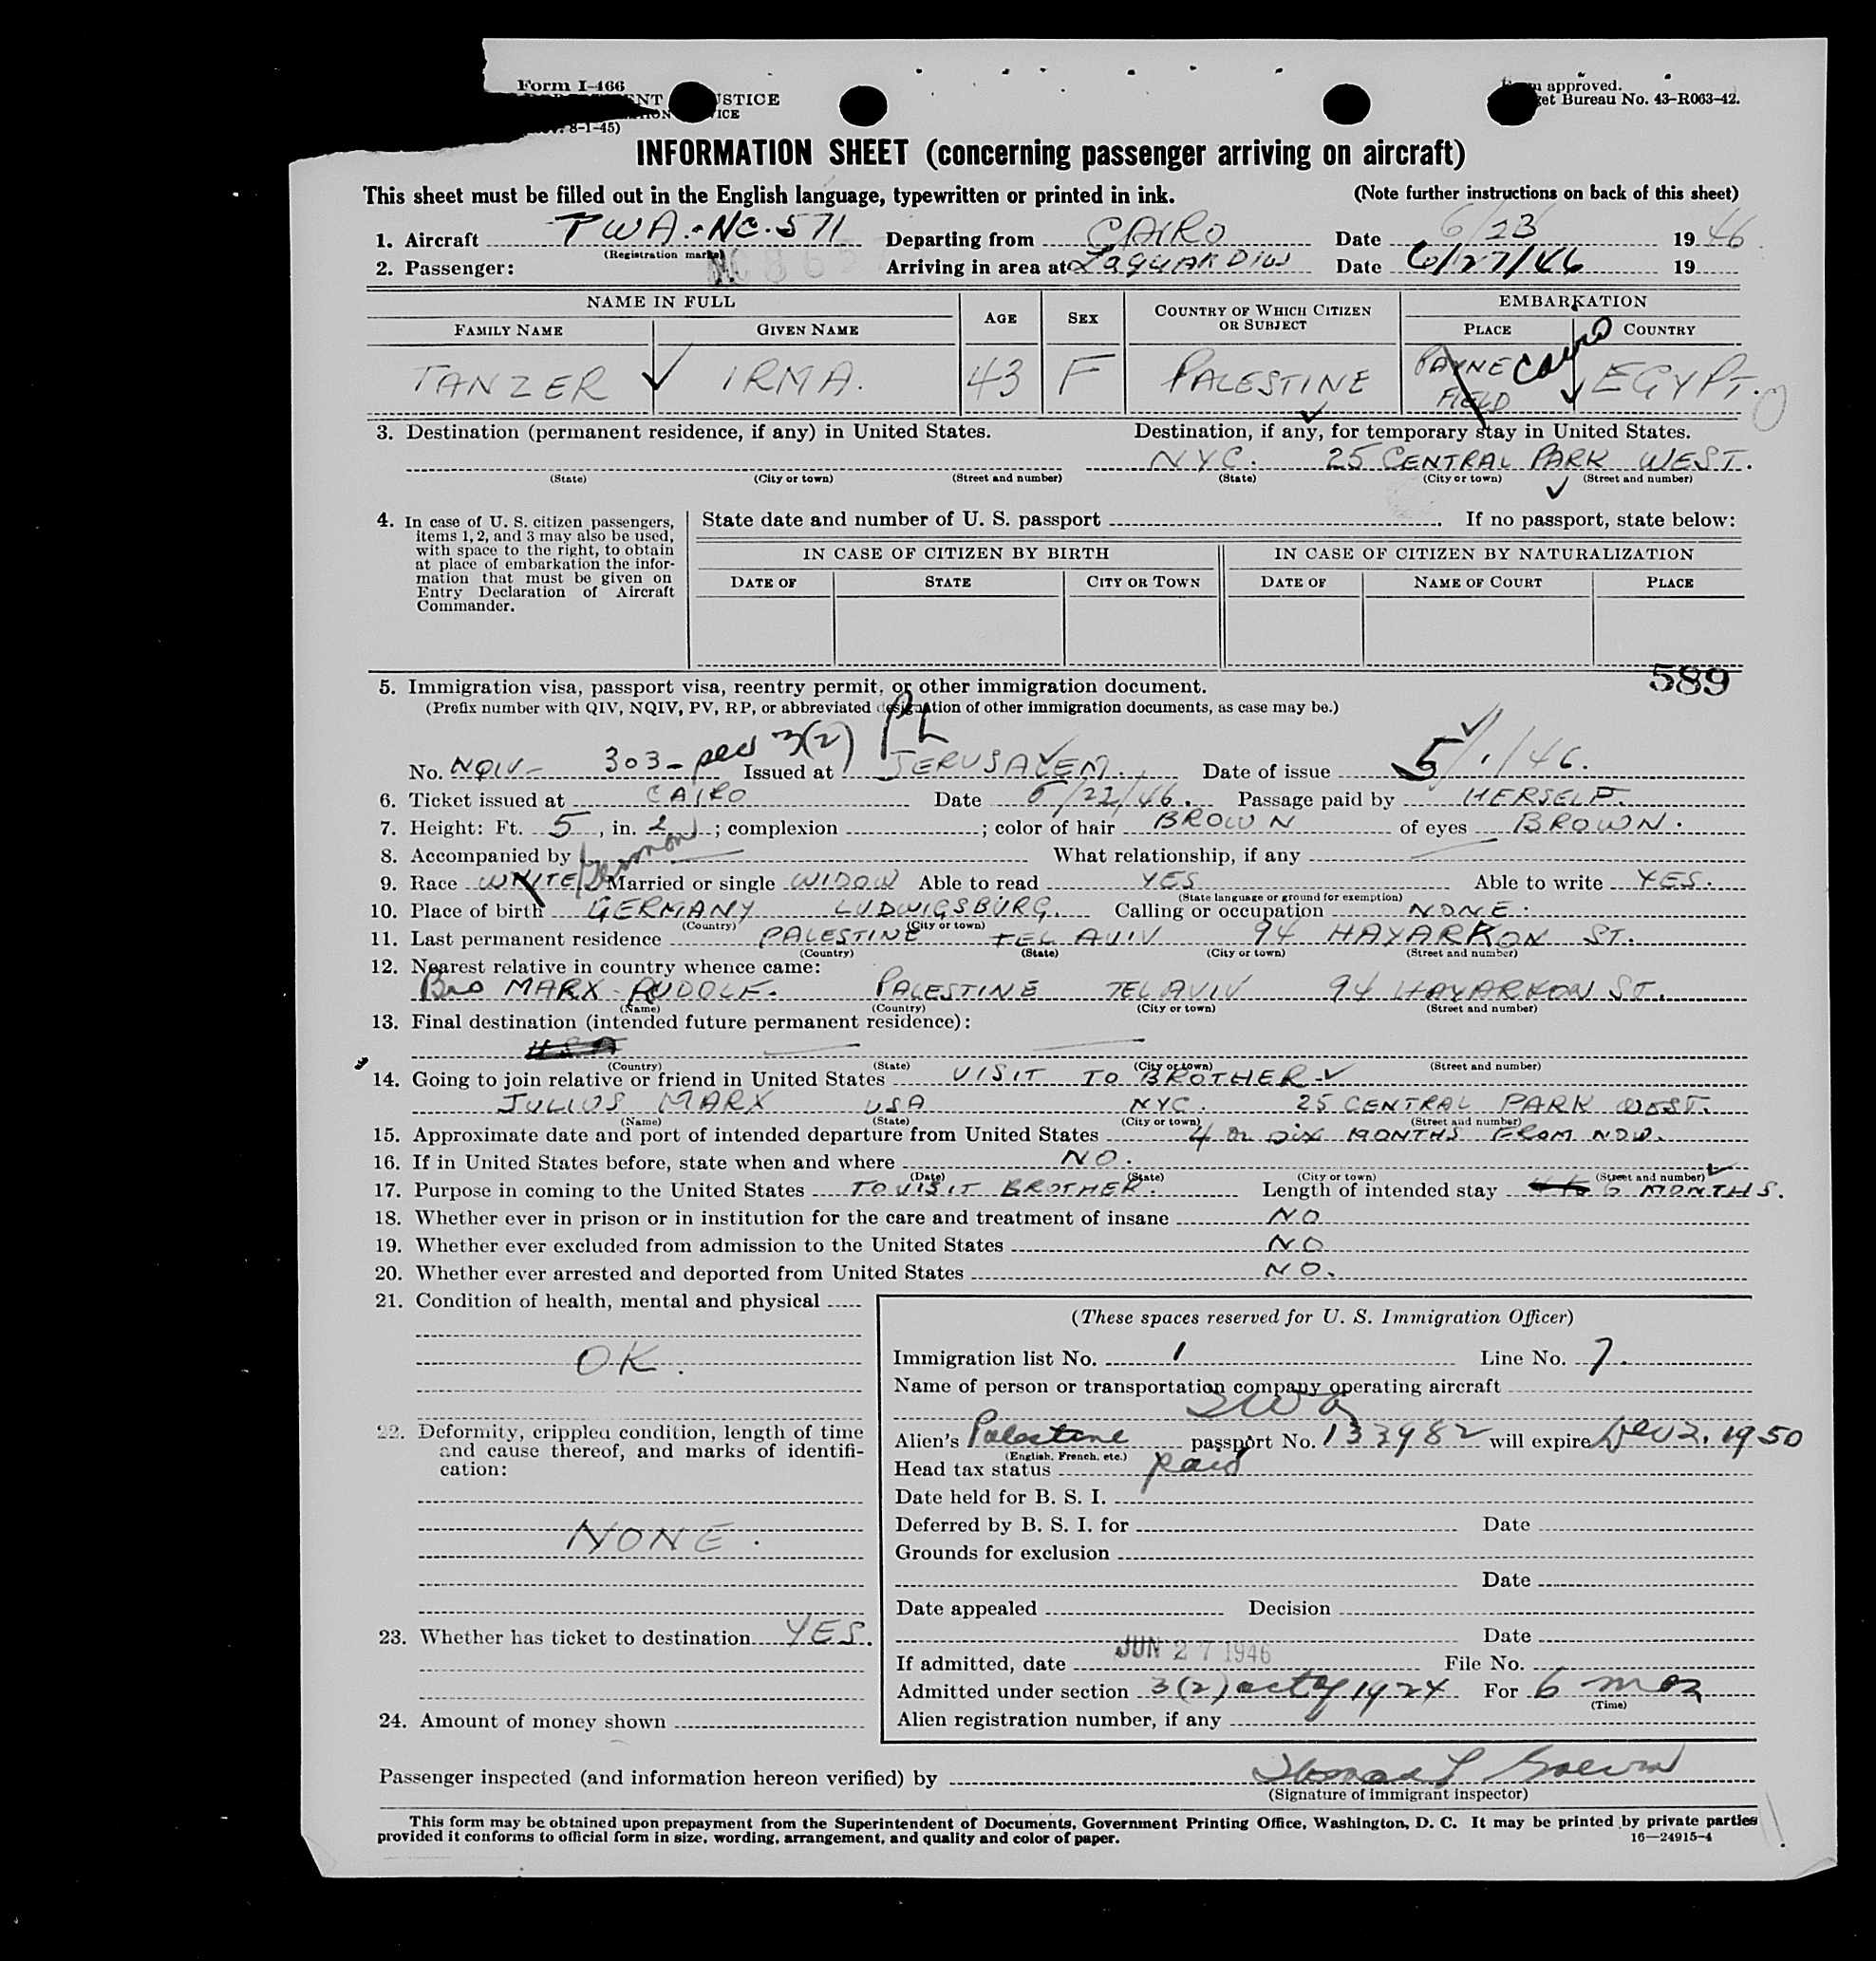 Form I-466
STICE
ICE
8-1-45)
approved.
et Bureau No. 43-R063-42.
INFORMATION SHEET (concerning passenger arriving on aircraft)
This sheet must be filled out in the English language, typewritten or printed in ink. (Note further instructions on back of this sheet)
1. Aircraft TWA.-NC.571 Departing from CAIRO Date 6/23 1946
(Registration marks)
2. Passenger: Arriving in area at LaGUARDIA Date 6/27/46 19
NAME IN FULL AGE SEX COUNTRY OF WHICH CITIZEN OR SUBJECT EMBARKATION
FAMILY NAME GIVEN NAME PLACE COUNTRY
TANZER IRMA. 43 F PALESTINE PAYNE FIELD Cairo EGYPT.
3. Destination (permanent residence, if any) in United States. Destination, if any, for temporary stay in United States.
NYC. 25 CENTRAL PARK WEST.
(State) (City or town) (Street and number) (State) (City or town) (Street and number)
4. In case of U. S. citizen passengers, items 1, 2, and 3 may also be used, with space to the right, to obtain at place of embarkation the information that must be given on Entry Declaration of Aircraft Commander.
State date and number of U. S. passport . If no passport, state below:
IN CASE OF CITIZEN BY BIRTH IN CASE OF CITIZEN BY NATURALIZATION
DATE OF STATE CITY OR TOWN DATE OF NAME OF COURT PLACE
589
5. Immigration visa, passport visa, reentry permit, or other immigration document.
(Prefix number with QIV, NQIV, PV, RP, or abbreviated designation of other immigration documents, as case may be.)
No. NQIV- 303- sec 3(2) Issued at JERUSALEM. Date of issue 5/1/46.
6. Ticket issued at CAIRO Date 6/22/46. Passage paid by HERSELF.
7. Height: Ft. 5, in. 2; complexion ; color of hair BROWN of eyes BROWN.
8. Accompanied by What relationship, if any
9. Race WHITE German Married or single WIDOW Able to read YES Able to write YES.
(State language or ground for exemption)
10. Place of birth GERMANY LUDWIGSBURG. Calling or occupation NONE.
(Country) (City or town)
11. Last permanent residence PALESTINE TEL AVIV 94 HAYARKON ST.
(Country) (State) (City or town) (Street and number)
12. Nearest relative in country whence came:
Bro MARX RUDOLF. PALESTINE TEL AVIV 94 HAYARKON ST.
(Name) (Country) (City or town) (Street and number)
13. Final destination (intended future permanent residence):
USA
(Country) (State) (City or town) (Street and number)
14. Going to join relative or friend in United States VISIT TO BROTHER
JULIUS MARX USA NYC. 25 CENTRAL PARK WEST.
(Name) (State) (City or town) (Street and number)
15. Approximate date and port of intended departure from United States 4 or six MONTHS FROM NOW.
16. If in United States before, state when and where NO.
(Date) (State) (City or town) (Street and number)
17. Purpose in coming to the United States TO VISIT BROTHER. Length of intended stay 6 MONTHS.
18. Whether ever in prison or in institution for the care and treatment of insane NO
19. Whether ever excluded from admission to the United States NO
20. Whether ever arrested and deported from United States NO.
21. Condition of health, mental and physical
OK.
22. Deformity, crippled condition, length of time and cause thereof, and marks of identification:
NONE.
23. Whether has ticket to destination YES.
24. Amount of money shown
(These spaces reserved for U. S. Immigration Officer)
Immigration list No. 1 Line No. 7.
Name of person or transportation company operating aircraft
TWA
Alien's Palestine passport No. 133982 will expire Dec 2, 1950
(English, French, etc.)
Head tax status paid
Date held for B. S. I.
Deferred by B. S. I. for Date
Grounds for exclusion
Date
Date appealed Decision
Date
If admitted, date JUN 27 1946 File No.
Admitted under section 3(2) act of 1924 For 6 mos
(Time)
Alien registration number, if any
Passenger inspected (and information hereon verified) by
(Signature of immigrant inspector)
This form may be obtained upon prepayment from the Superintendent of Documents, Government Printing Office, Washington, D. C. It may be printed by private parties
provided it conforms to official form in size, wording, arrangement, and quality and color of paper. 16—24915-4